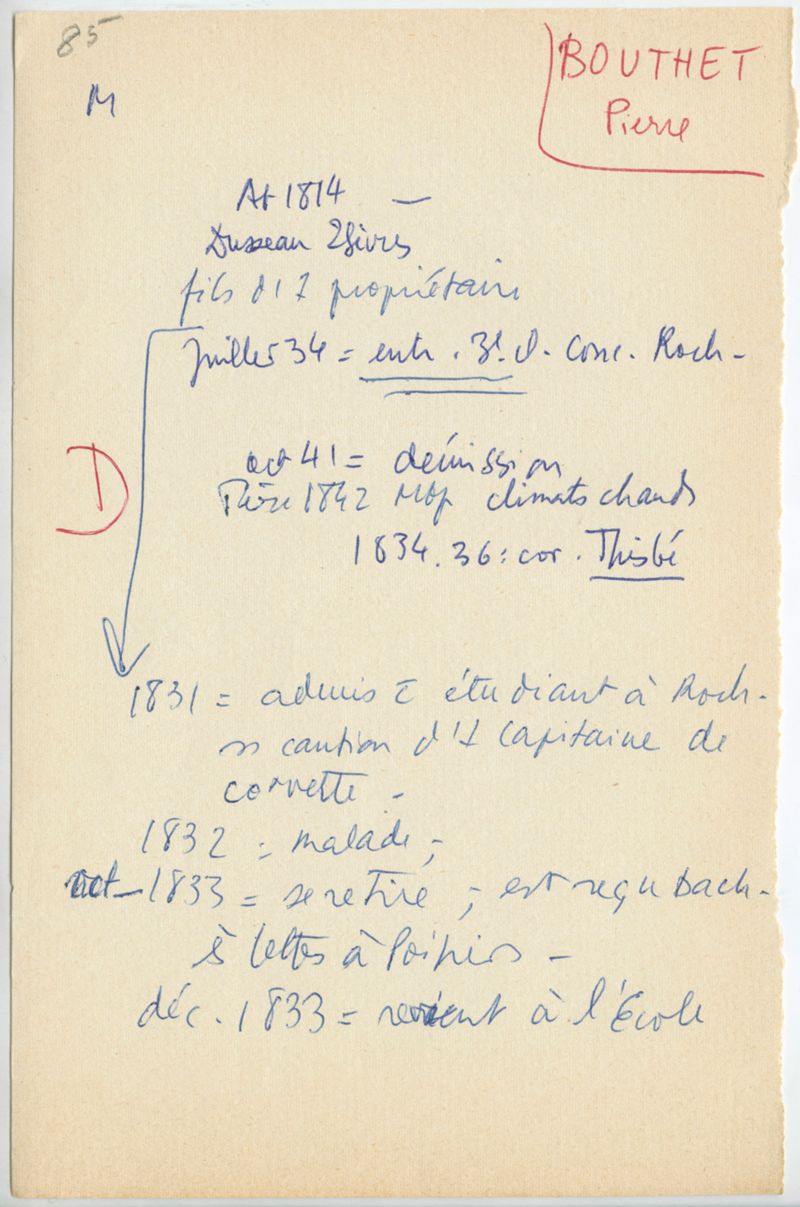 85
M
BOUTHET
Pierre
At 1814 —
2Sèvres
fils d'1 propriétaire
Juillet 34 = entr. 3e cl. conc. Roch-
D
oct 41 = démission
1842 Mtp climats chauds
1834.36 : cor. Thisbé
1831 = admis c̄ étudiant à Roch.
ss caution d'1 capitaine de
corvette -
1832 = malade ;
oct - 1833 = se retire ; est reçu bach-
ès lettres à Poitiers -
déc. 1833 = revient à l'École